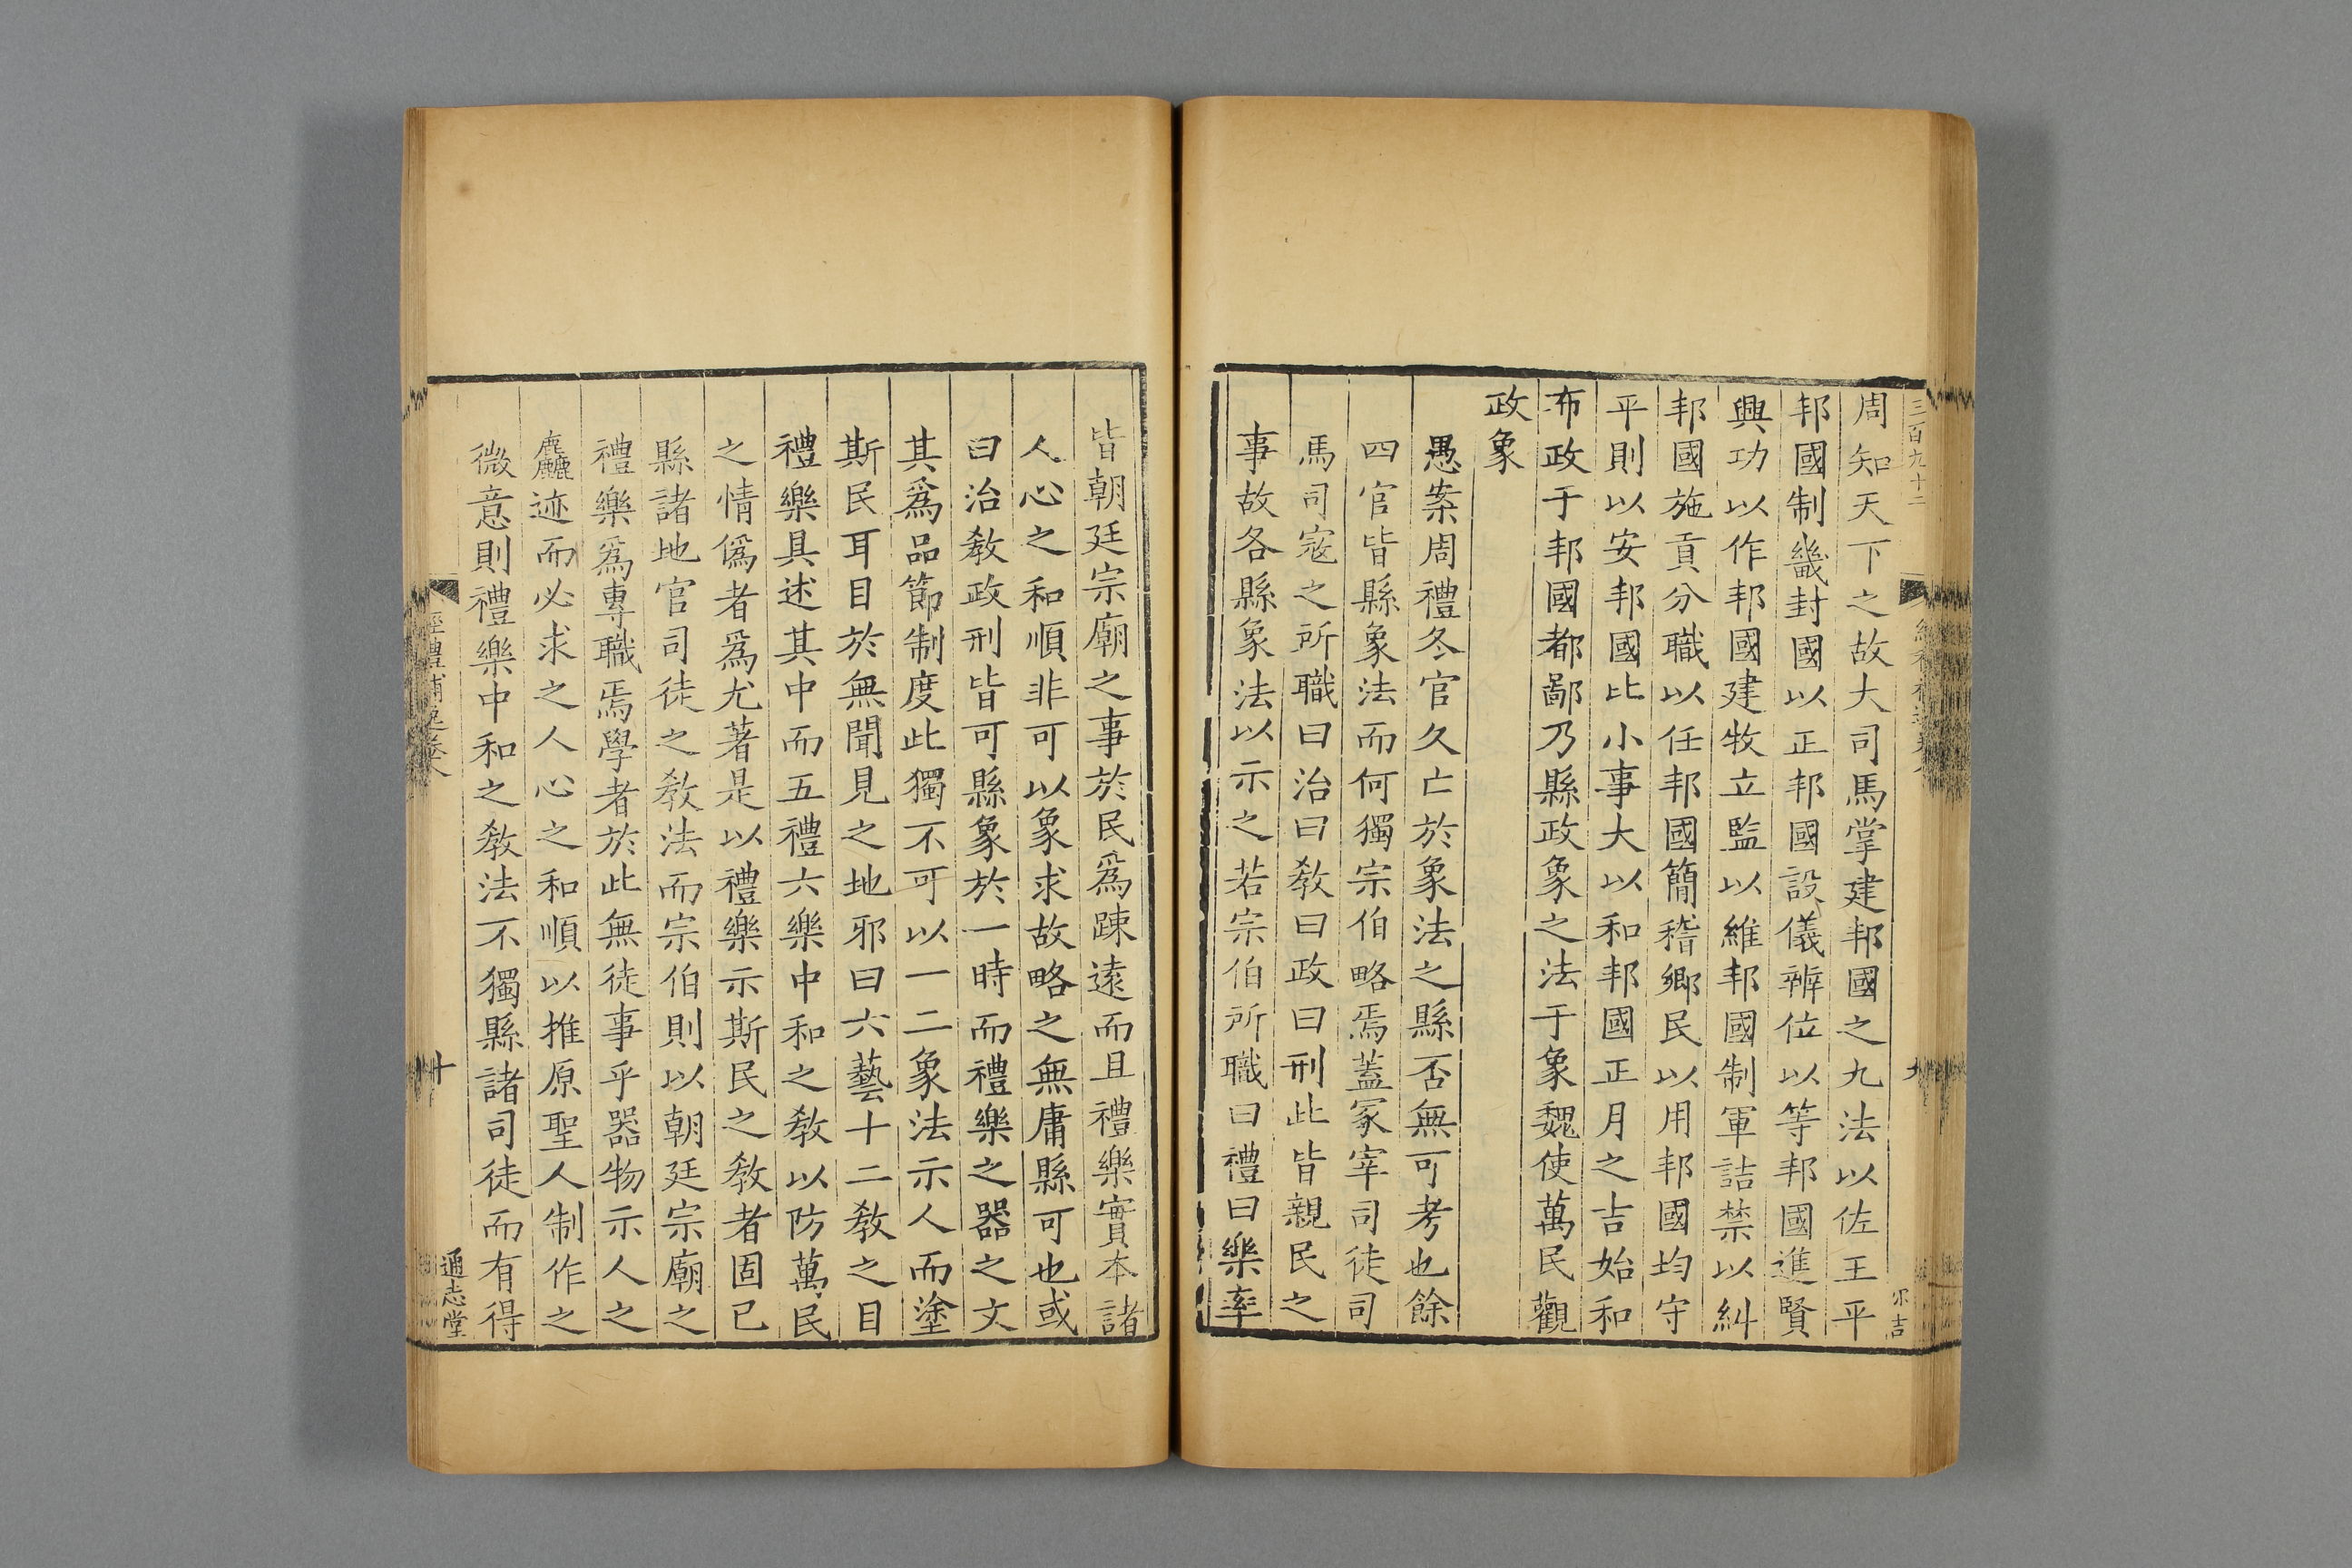 三百九十二
周知天下之故大司馬掌建邦國之九法以佐王平
邦國制畿封國以正邦國設儀辨位以等邦國進賢
興功以作邦國建牧立監以維邦國制軍詰禁以糾
邦國施貢分職以任邦國簡稽鄉民以用邦國均守
平則以安邦國比小事大以和邦國正月之吉始和
布政于邦國都鄙乃縣政象之法于象魏使萬民觀
政象
愚案周禮冬官久亡於象法之縣否無可考也餘
四官皆縣象法而何獨宗伯略焉蓋冢宰司徒司
馬司寇之所職曰治曰敎曰政曰刑此皆親民之
事故各縣象法以示之若宗伯所職曰禮曰樂率
皆朝廷宗廟之事於民爲踈遠而且禮樂實本諸
人心之和順非可以象求故略之無庸縣可也或
曰治敎政刑皆可縣象於一時而禮樂之器之文
其爲品節制度此獨不可以一二象法示人而塗
斯民耳目於無聞見之地邪曰六藝十二敎之目
禮樂具述其中而五禮六樂中和之敎以防萬民
之情僞者爲尤著是以禮樂示斯民之敎者固已
縣諸地官司徒之敎法而宗伯則以朝廷宗廟之
禮樂爲專職焉學者於此無徒事乎器物示人之
麤迹而必求之人心之和順以推原聖人制作之
微意則禮樂中和之敎法不獨縣諸司徒而有得
經禮補逸卷八
十
通志堂